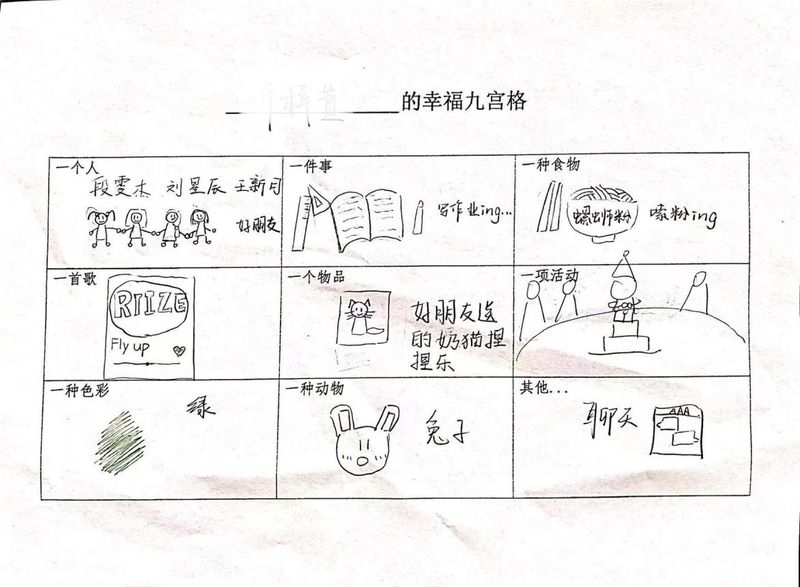 的幸福九宫格
一个人
段雯杰 刘星辰 王新月
好朋友
一件事
写作业ing...
一种食物
螺蛳粉
嗦粉ing
一首歌
RIIZE
Fly up
一个物品
好朋友送
的奶猫捏
捏乐
一项活动
一种色彩
绿
一种动物
兔子
其他...
聊天
AAA